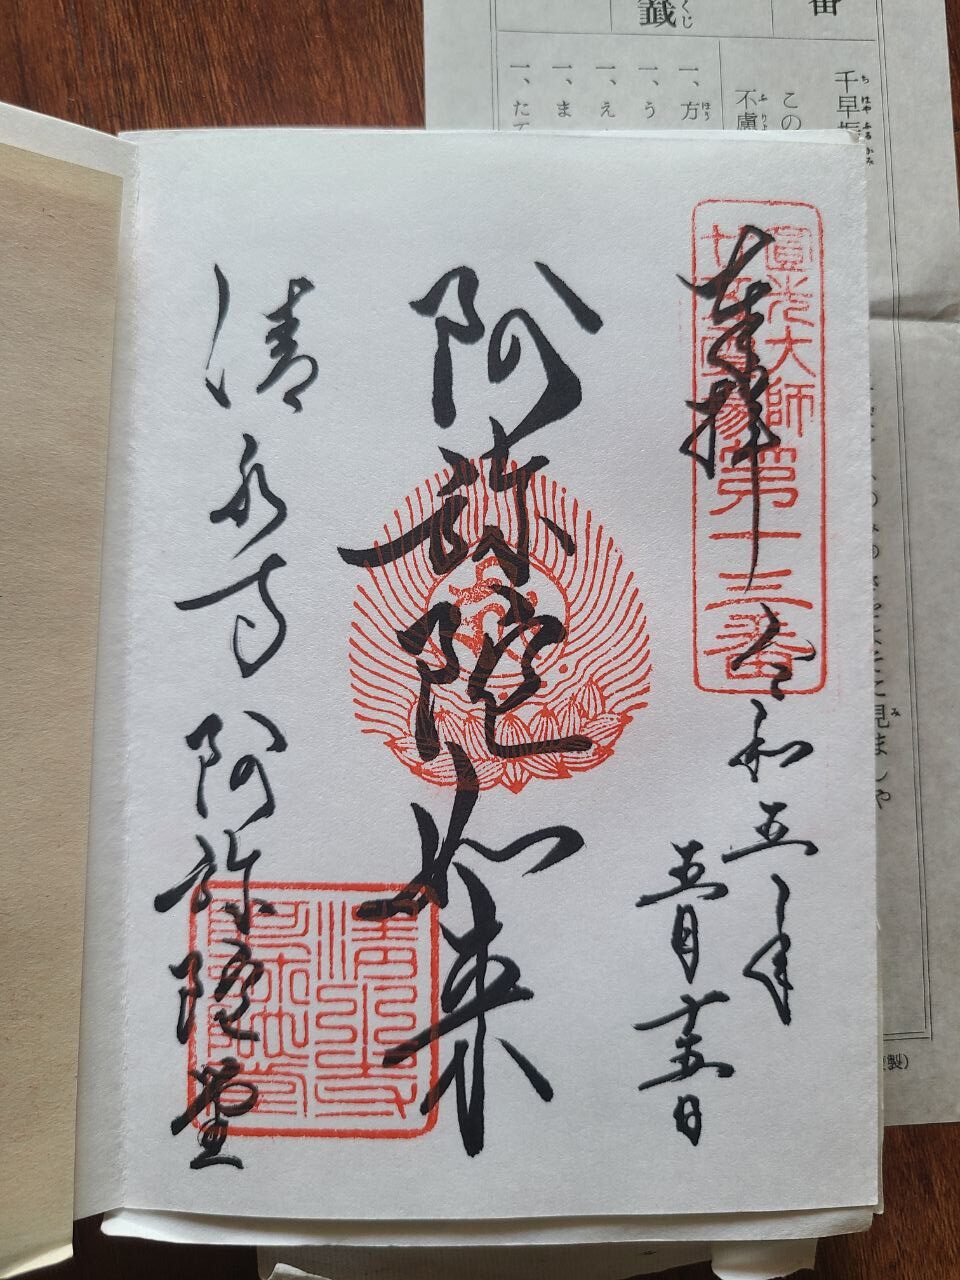 奉拝
令和五年
五月廿五日
圓光大師
廿五霊場
第十三番
阿弥陀如来
清水寺
阿弥陀堂
清水寺
阿弥陀堂
番
籤
くじ
千早振
この
不慮
一、方
一、う
一、え
一、ま
一、た
見ましや
製)